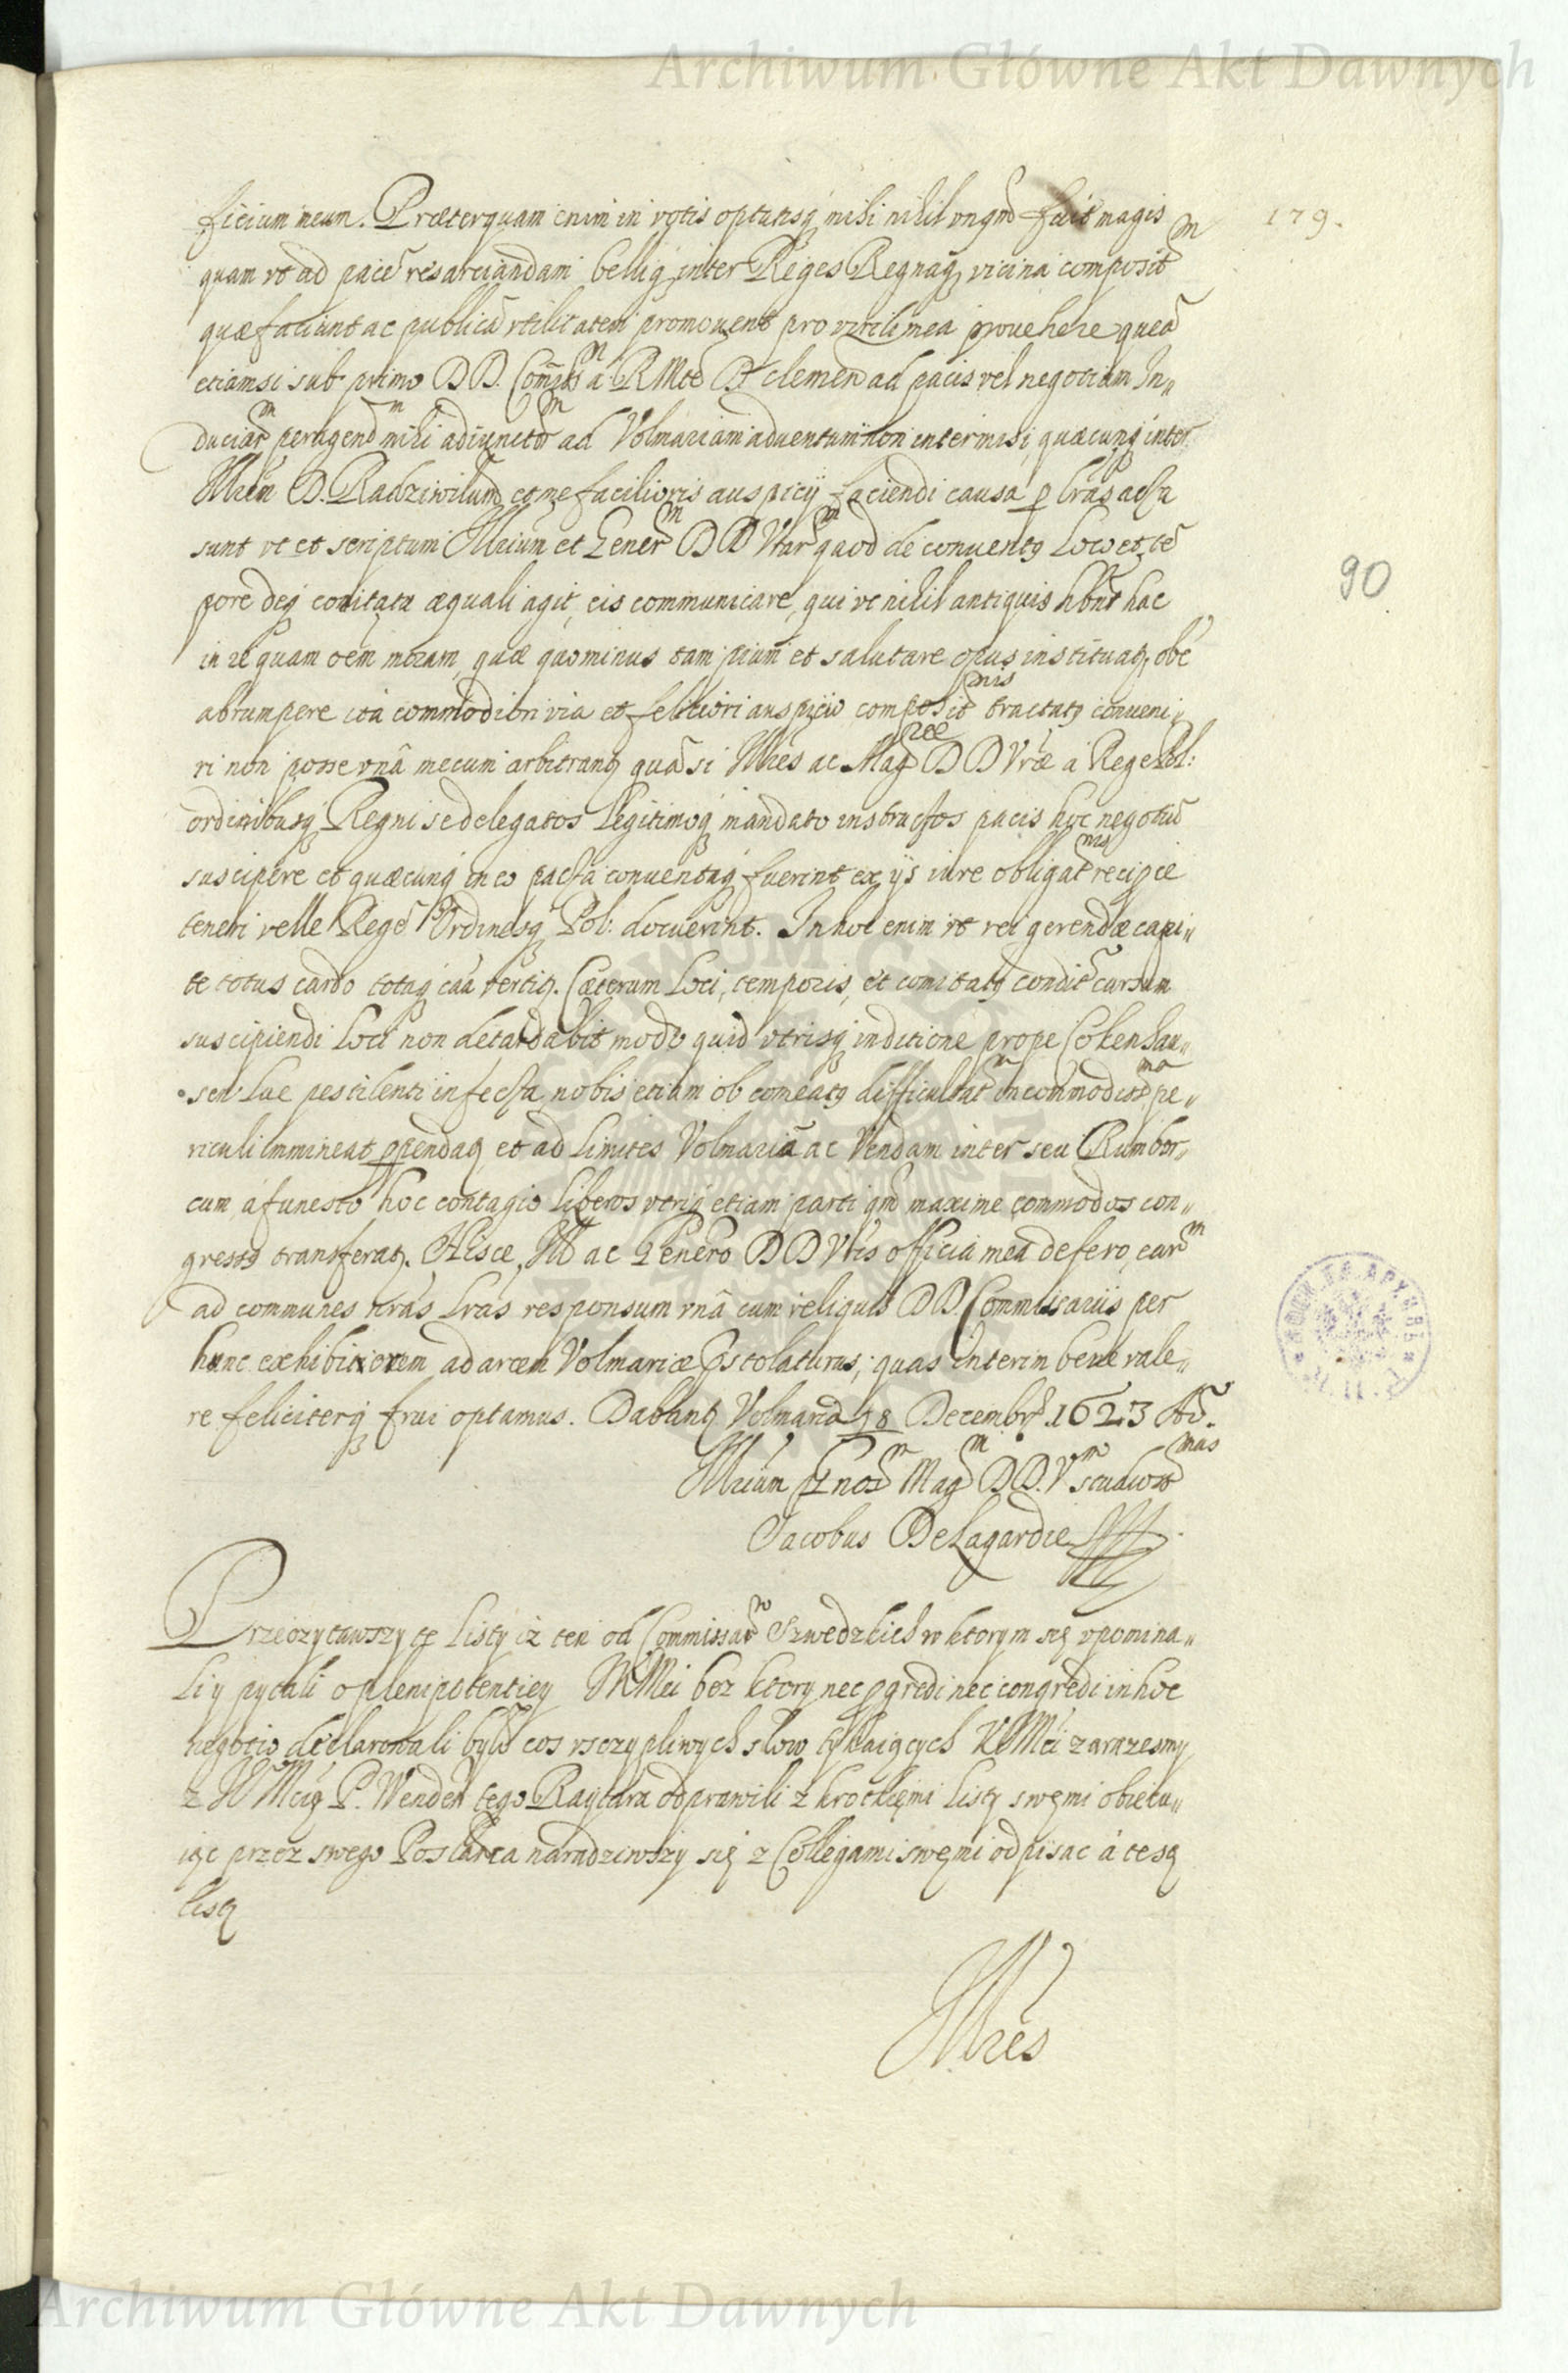 Archiwum Główne Akt Dawnych
ficium meum. Præterquam enim in votis optatisq mihi nihil unqm̃ fuit magis
179.
quam vt ad pacẽ resarciandam belliq inter Reges Regnaq vicina composit̃m
quæ faciunt ac publicã vtilitatem promovent pro virili mea provehere queã
etiamsi sub primo DD. Com̃rũm a RMte D clemen ad pacis vel negotium In„
duciar̃m peragend̃m mihi adiunctor̃m ad Volmariam adventum non intermisi, quæcunq inter
Illrem D. Radziwilum et me facilioris auspicÿ faciendi causa p lras acta
sunt vt et scriptum Illrium et Gener̃m DD Vrar̃m quod de conventq loco et tẽ
pore deq comitatu æquali agit, eis communicare, qui vt nihil antiquis hbnt hac
90
in re quam oem moram, quæ quominus tam pium et salutare opus instituatq obẽ
abrumpere ita commodiori via et feliciori auspicio composit̃nis tractatq conveni„
ri non posse vnâ mecum arbitrantq quã si Illres ac Mag̃cæ DD Vræ a Rege Pol:
ordinibusq Regni se delegatos legitimoq mandato instructos pacis hoc negotiũ
suscipere et quæcunq in eo pacta conventaq fuerint ex ÿs iure obligat̃nis recipẽ
teneri velle Regẽ Ordinesq Pol: docuerint. In hoc enim vt rei gerendæ capi„
te totus cardo totaq caã vertitq. Cæterum Loci, temporis, et comitatq condit̃ cursum
suscipiendi Loci non detardabit modo quid vtrisq in ditione prope Cokenhau„
sen lue pestilenti infecta nobis etiam ob comeatq difficultat̃m incommodit̃ma pe„
riculi immineat ppendatq et ad limites Volmariã ac Vendam inter seu Rumbor„
cum á funesto hoc contagio liberos vtriq etiam parti qm̃ maxime commodos con„
gressq transferatq. Hisce, Ill ac Genero DD Vris officia mea defero, ear̃m
ad communes nras lras responsum vnâ cum reliquis DD Commissariis per
hunc exhibitorem ad arcem Volmariæ Postolaturus, quas interim bene vale„
re feliciterq frui optamus. Dabantq Volmaria 18 Decembr 1623 Aõ.
Illrium Gnos̃m Mag̃m DD. Ṽm studios̃mas
Jacobus DeLagardie
Przeczytawszy te Listy iż ten od Commissar̃w Szwedzkich w ktorym się vpomina„
li y pytali o plenipotentiey JKMci bez ktory nec pgredi nec congredi in hoc
negotio declarowali byłõ cos vsczypliwych słow tykaiących KJMci zarazesmy
z JMcią P. Wenden tego Raytara odprawili z krotkiemi listy swęmi obiecu„
iąc przez swego Posłańca naradziwszy się z Collegami swęmi odpisac á te są
listy
Illres
Archiwum Główne Akt Dawnych